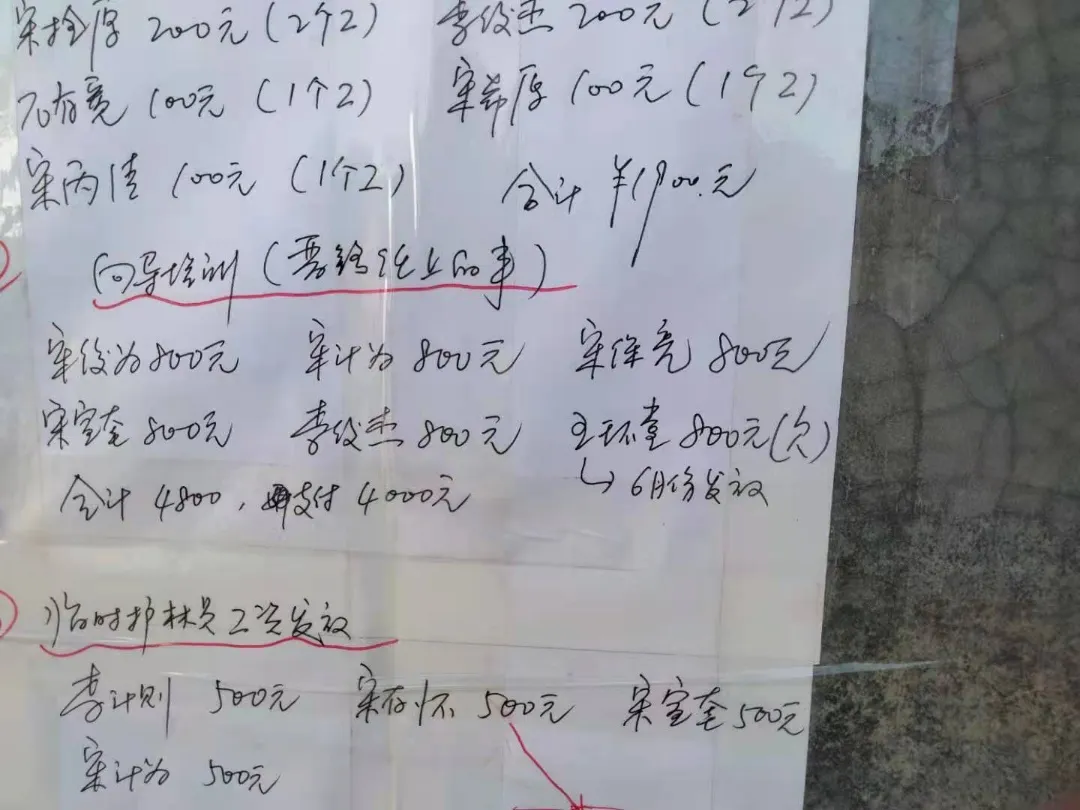 宋拴厚 200元(2个工) 李俊杰 200元(2个工)
石存亮 100元(1个工) 宋希厚 100元(1个工)
宋丙信 100元(1个工) 合计 ¥1900.元
向导培训(要给群上的事)
宋俊为800元 宋计为 800元 宋保亮 800元
宋宝奎 800元 李俊杰 800元 王环堂 800元(欠)
合计 4800,再支付 4000元 ↳ 6月份发放
临时护林员工资发放
李计则 500元 宋存怀 500元 宋宝奎500元
宋计为 500元